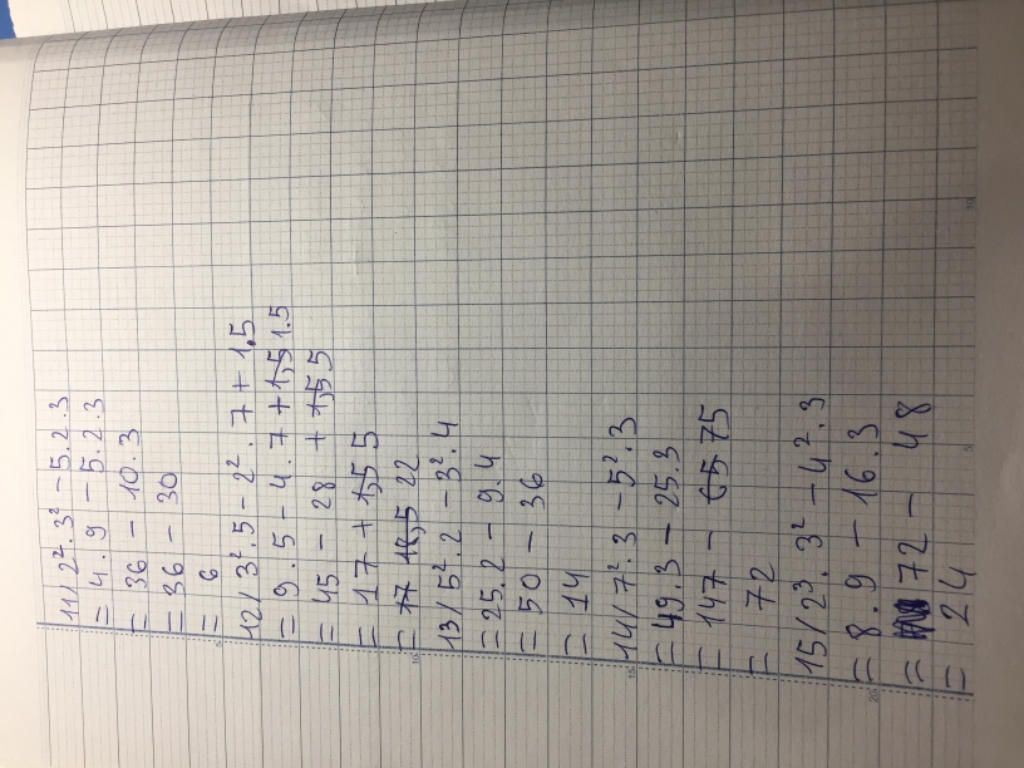 11/ 2².3² - 5.2.3
= 4.9 - 5.2.3
= 36 - 10.3
= 36 - 30
= 6
12/ 3².5 - 2².7 + 1.5
= 9.5 - 4.7 + 1,5 1.5
= 45 - 28 + 1,5 5
= 17 + 1,5 5
= 17 18,5 22
13/ 5².2 - 3².4
= 25.2 - 9.4
= 50 - 36
= 14
14/ 7².3 - 5².3
= 49.3 - 25.3
= 147 - 65 75
= 72
15/ 2³.3² - 4².3
= 8.9 - 16.3
= 72 - 48
= 24